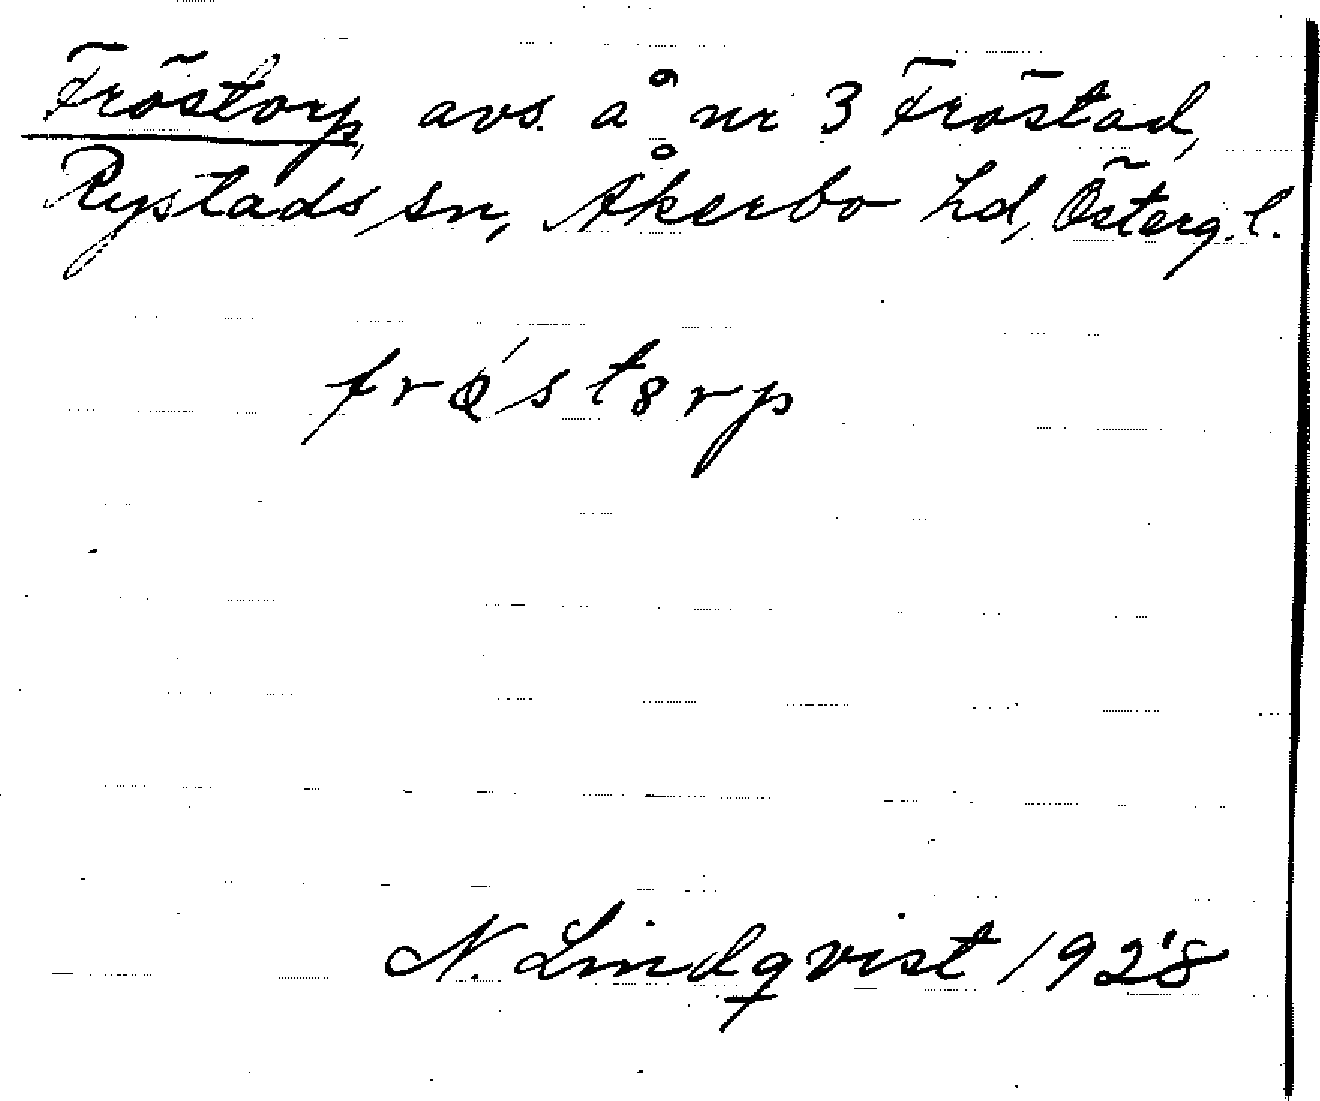 Fröstorp, avs. å nr 3 Fröstad,
Rystads sn, Åkerbo hd, Österg. l.
N. Lindqvist 1928